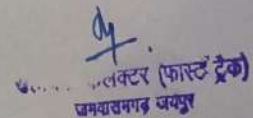 लक्टर (फास्ट ट्रैक)
जमवारामगढ़ जयपुर